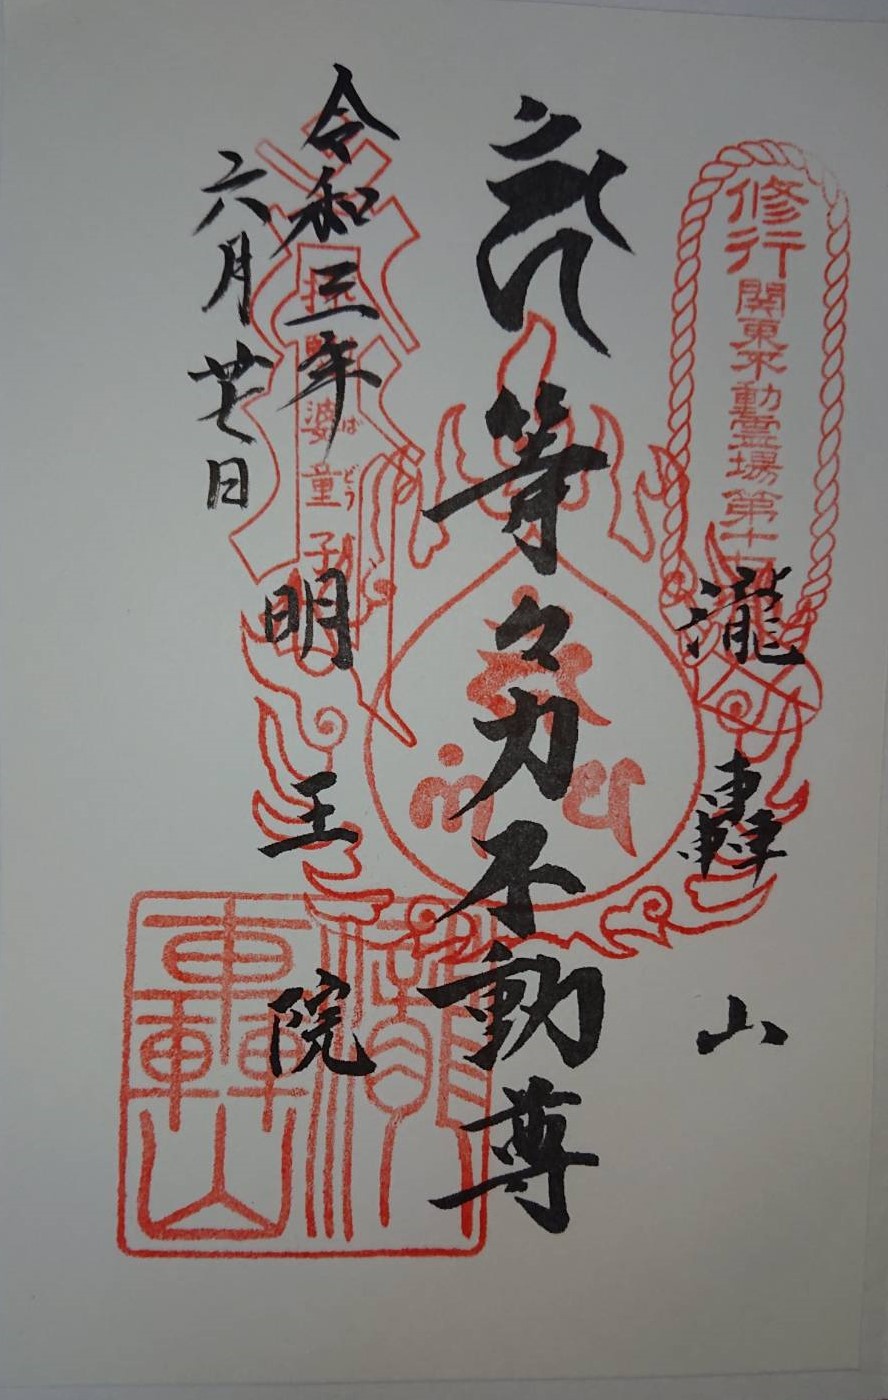 修行 関東不動霊場 第十七
瀧轟山
等々力不動尊
令和三年
六月廿七日
明王院
婆童子
ば どう じ
瀧轟山